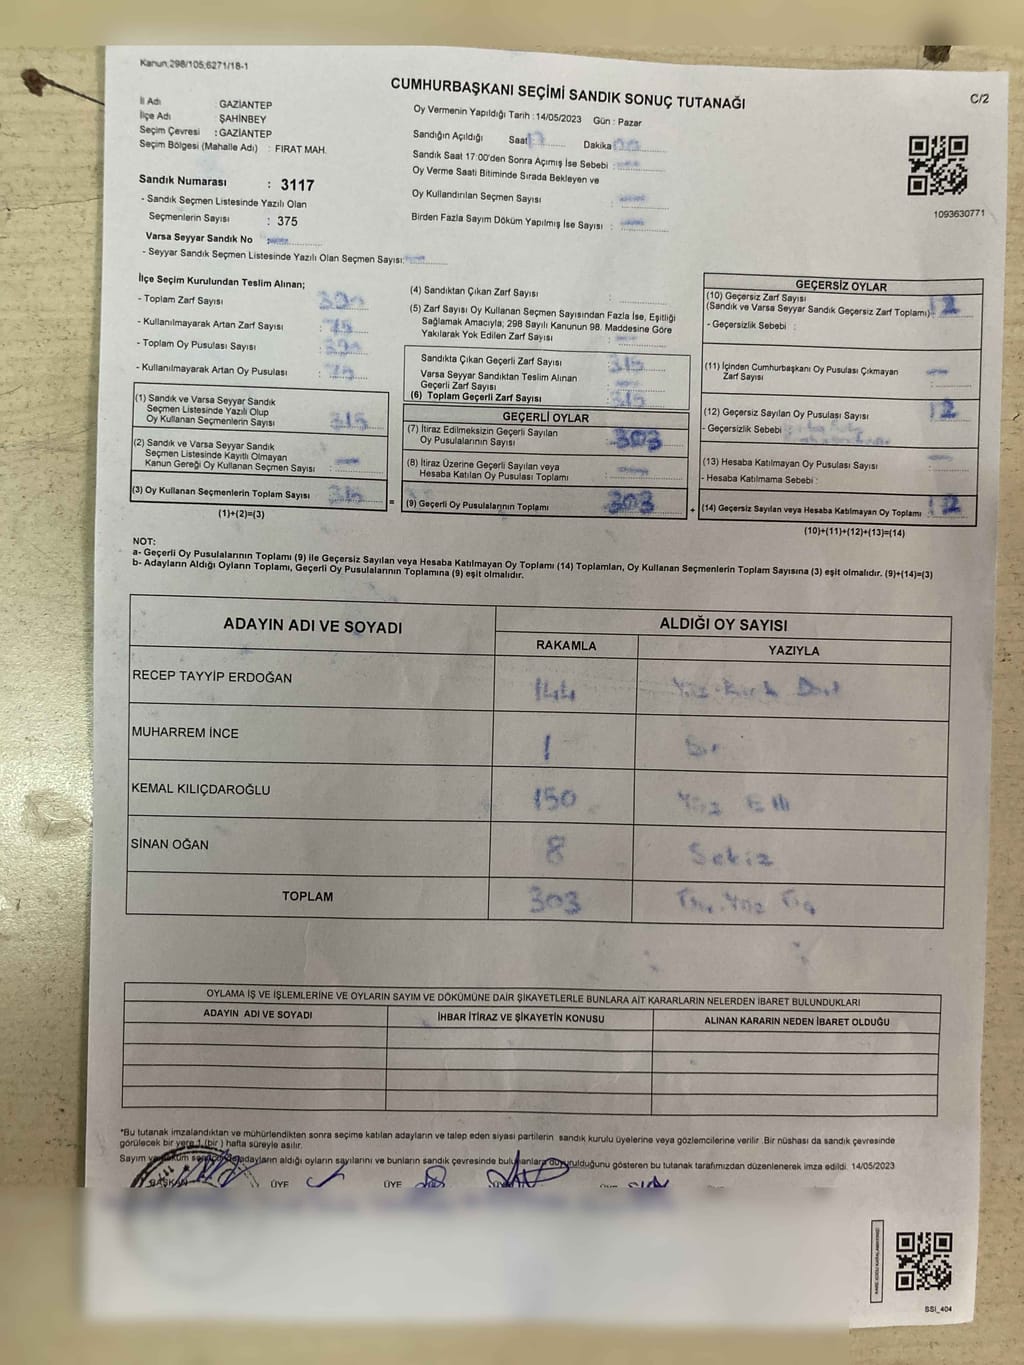 Kanun,298/105;6271/18-1
CUMHURBAŞKANI SEÇİMİ SANDIK SONUÇ TUTANAĞI
C/2
İl Adı : GAZİANTEP
İlçe Adı : ŞAHİNBEY
Seçim Çevresi : GAZİANTEP
Seçim Bölgesi (Mahalle Adı) : FIRAT MAH.
Oy Vermenin Yapıldığı Tarih : 14/05/2023 Gün : Pazar
Sandığın Açıldığı Saat 17 Dakika 00
Sandık Saat 17:00'den Sonra Açımış İse Sebebi :
Oy Verme Saati Bitiminde Sırada Bekleyen ve
Oy Kullandırılan Seçmen Sayısı :
Birden Fazla Sayım Döküm Yapılmış İse Sayısı :
1093630771
Sandık Numarası : 3117
- Sandık Seçmen Listesinde Yazılı Olan
Seçmenlerin Sayısı : 375
Varsa Seyyar Sandık No
- Seyyar Sandık Seçmen Listesinde Yazılı Olan Seçmen Sayısı:
İlçe Seçim Kurulundan Teslim Alınan;
- Toplam Zarf Sayısı :
- Kullanılmayarak Artan Zarf Sayısı : 75
- Toplam Oy Pusulası Sayısı :
- Kullanılmayarak Artan Oy Pusulası : 75
(1) Sandık ve Varsa Seyyar Sandık
Seçmen Listesinde Yazılı Olup
Oy Kullanan Seçmenlerin Sayısı : 315
(2) Sandık ve Varsa Seyyar Sandık
Seçmen Listesinde Kayıtlı Olmayan
Kanun Gereği Oy Kullanan Seçmen Sayısı :
(3) Oy Kullanan Seçmenlerin Toplam Sayısı 315
(1)+(2)=(3)
(4) Sandıktan Çıkan Zarf Sayısı :
(5) Zarf Sayısı Oy Kullanan Seçmen Sayısından Fazla İse, Eşitliği
Sağlamak Amacıyla; 298 Sayılı Kanunun 98. Maddesine Göre
Yakılarak Yok Edilen Zarf Sayısı :
Sandıkta Çıkan Geçerli Zarf Sayısı : 315
Varsa Seyyar Sandıktan Teslim Alınan
Geçerli Zarf Sayısı :
(6) Toplam Geçerli Zarf Sayısı 315
GEÇERLİ OYLAR
(7) İtiraz Edilmeksizin Geçerli Sayılan
Oy Pusulalarının Sayısı : 303
(8) İtiraz Üzerine Geçerli Sayılan veya
Hesaba Katılan Oy Pusulası Toplamı :
= (9) Geçerli Oy Pusulalarının Toplamı 303
GEÇERSİZ OYLAR
(10) Geçersiz Zarf Sayısı
(Sandık ve Varsa Seyyar Sandık Geçersiz Zarf Toplamı): 12
- Geçersizlik Sebebi :
(11) İçinden Cumhurbaşkanı Oy Pusulası Çıkmayan
Zarf Sayısı :
(12) Geçersiz Sayılan Oy Pusulası Sayısı 12
- Geçersizlik Sebebi
(13) Hesaba Katılmayan Oy Pusulası Sayısı
- Hesaba Katılmama Sebebi :
+ (14) Geçersiz Sayılan veya Hesaba Katılmayan Oy Toplamı 12
(10)+(11)+(12)+(13)=(14)
NOT:
a- Geçerli Oy Pusulalarının Toplamı (9) ile Geçersiz Sayılan veya Hesaba Katılmayan Oy Toplamı (14) Toplamları, Oy Kullanan Seçmenlerin Toplam Sayısına (3) eşit olmalıdır. (9)+(14)=(3)
b- Adayların Aldığı Oyların Toplamı, Geçerli Oy Pusulalarının Toplamına (9) eşit olmalıdır.
ADAYIN ADI VE SOYADI ALDIĞI OY SAYISI
RAKAMLA YAZIYLA
RECEP TAYYİP ERDOĞAN 144 Yüz Kırk Dört
MUHARREM İNCE 1 Bir
KEMAL KILIÇDAROĞLU 150 Yüz Elli
SİNAN OĞAN 8 Sekiz
TOPLAM 303 Üç Yüz Üç
OYLAMA İŞ VE İŞLEMLERİNE VE OYLARIN SAYIM VE DÖKÜMÜNE DAİR ŞİKAYETLERLE BUNLARA AİT KARARLARIN NELERDEN İBARET BULUNDUKLARI
ADAYIN ADI VE SOYADI İHBAR İTİRAZ VE ŞİKAYETİN KONUSU ALINAN KARARIN NEDEN İBARET OLDUĞU
*Bu tutanak imzalandıktan ve mühürlendikten sonra seçime katılan adayların ve talep eden siyasi partilerin sandık kurulu üyelerine veya gözlemcilerine verilir. Bir nüshası da sandık çevresinde
görülecek bir yere 1 (bir) hafta süreyle asılır.
Sayım ve döküm adayların aldığı oyların sayılarını ve bunların sandık çevresinde bulunanlara duyurulduğunu gösteren bu tutanak tarafımızdan düzenlenerek imza edildi. 14/05/2023
BAŞKAN ÜYE ÜYE
SSI_404